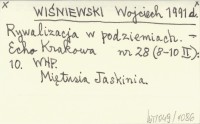 WIŚNIEWSKI Wojciech 1991 d.
Rywalizacja w podziemiach. -
Echo Krakowa nr 28 (8-10 II):
10. WHP.
Miętusia Jaskinia